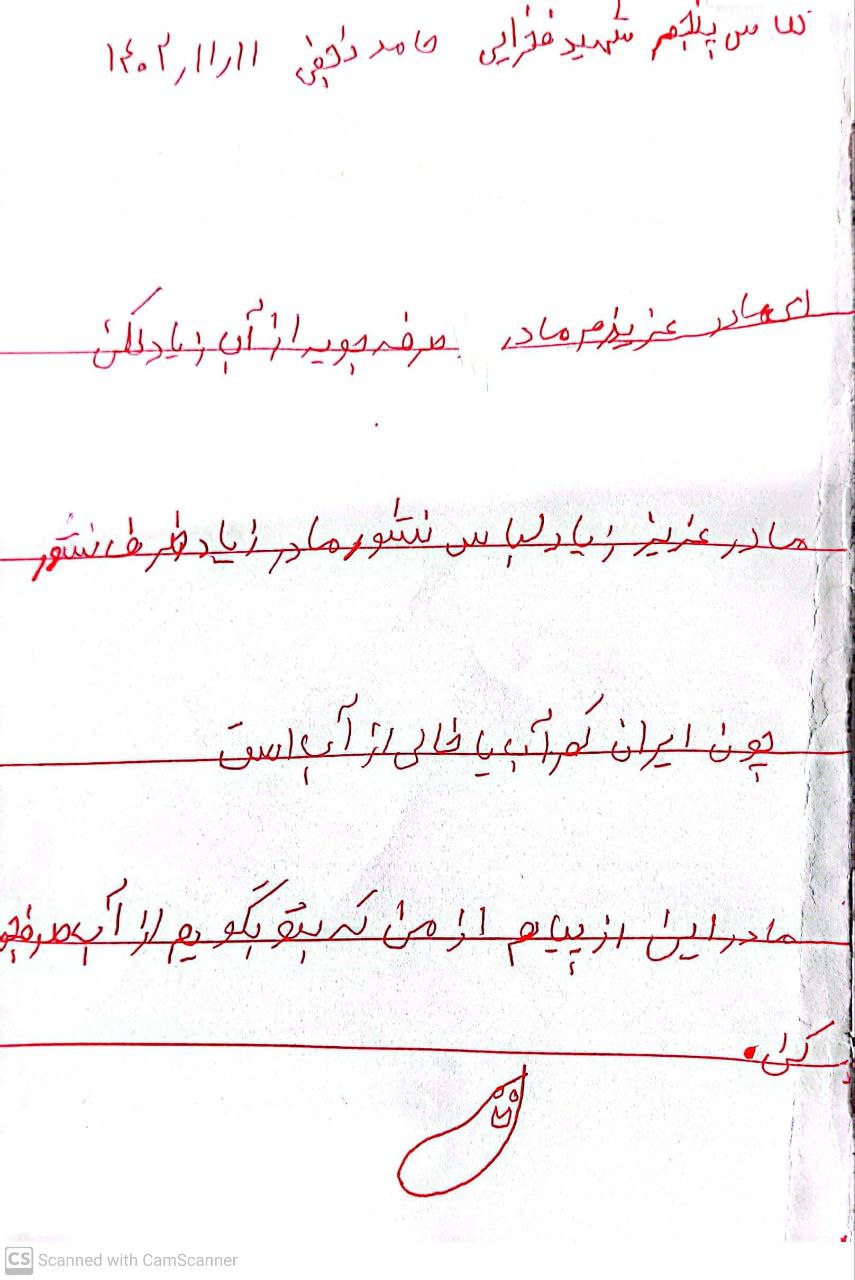 کلاس پنجم شهید فخرایی حامد ۱۴۰۲/۱۱/۱۱
ای مادر عزیزم مادر صرفه جویه از آب زیاد نکن
مادر عزیز زیاد لباس نشور مادر زیاد ظرف نشور
چون ایران کم آب یا خالی از آب است
مادر این از پیام از من که بتو بگویم از آب صرفه جو
کن.
CS Scanned with CamScanner